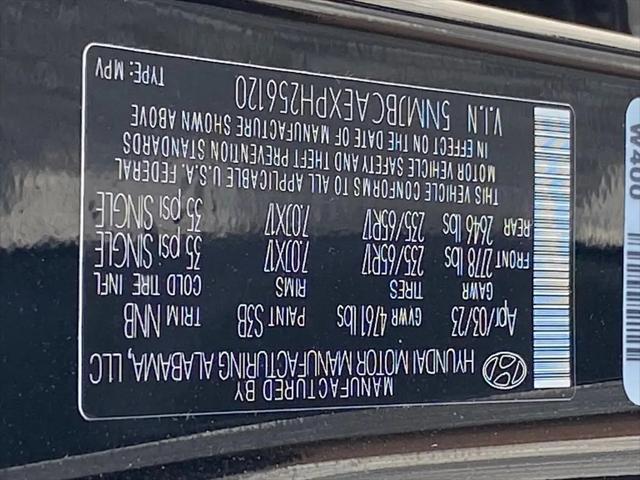 MANUFACTURED BY
HYUNDAI MOTOR MANUFACTURING ALABAMA, LLC
Apr/03/23 GVWR 4761lbs PAINT S3B TRIM NNB
GAWR TIRES RIMS COLD TIRE INFL
FRONT 2778 lbs 235/65R17 7.0JX17 35 psi SINGLE
REAR 2646 lbs 235/65R17 7.0JX17 35 psi SINGLE
THIS VEHICLE CONFORMS TO ALL APPLICABLE U.S.A. FEDERAL
MOTOR VEHICLE SAFETY AND THEFT PREVENTION STANDARDS
IN EFFECT ON THE DATE OF MANUFACTURE SHOWN ABOVE
V.I.N 5NMJBCAEXPH256120 TYPE: MPV